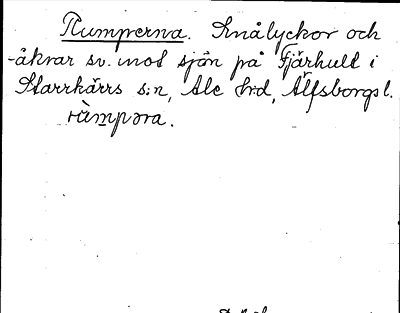 Rumperna. Snålyckor och
-åkrar sv. mot sjön på Fjärhult i
Starrkärrs s:n, Ale hd, Älfsborgs l.
ràmpəra.